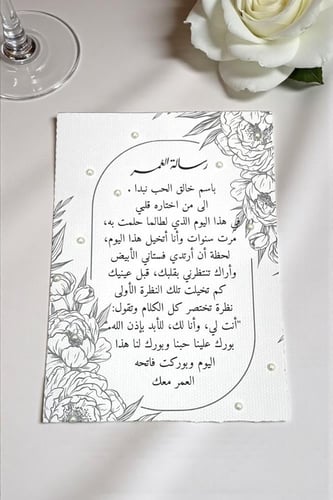 رسالة العمر
باسم خالق الحب نبدا .
الى من اختاره قلبي
في هذا اليوم الذي لطالما حلمت به،
مرت سنوات وأنا أتخيل هذا اليوم،
لحظة أن أرتدي فستاني الأبيض
وأراك تنتظرني بقلبك، قبل عينيك
كم تخيلت تلك النظرة الأولى
نظرة تختصر كل الكلام وتقول:
"أنت لي، وأنا لك، للأبد بإذن الله."
بورك علينا حبنا وبورك لنا هذا
اليوم وبوركت فاتحه
العمر معك